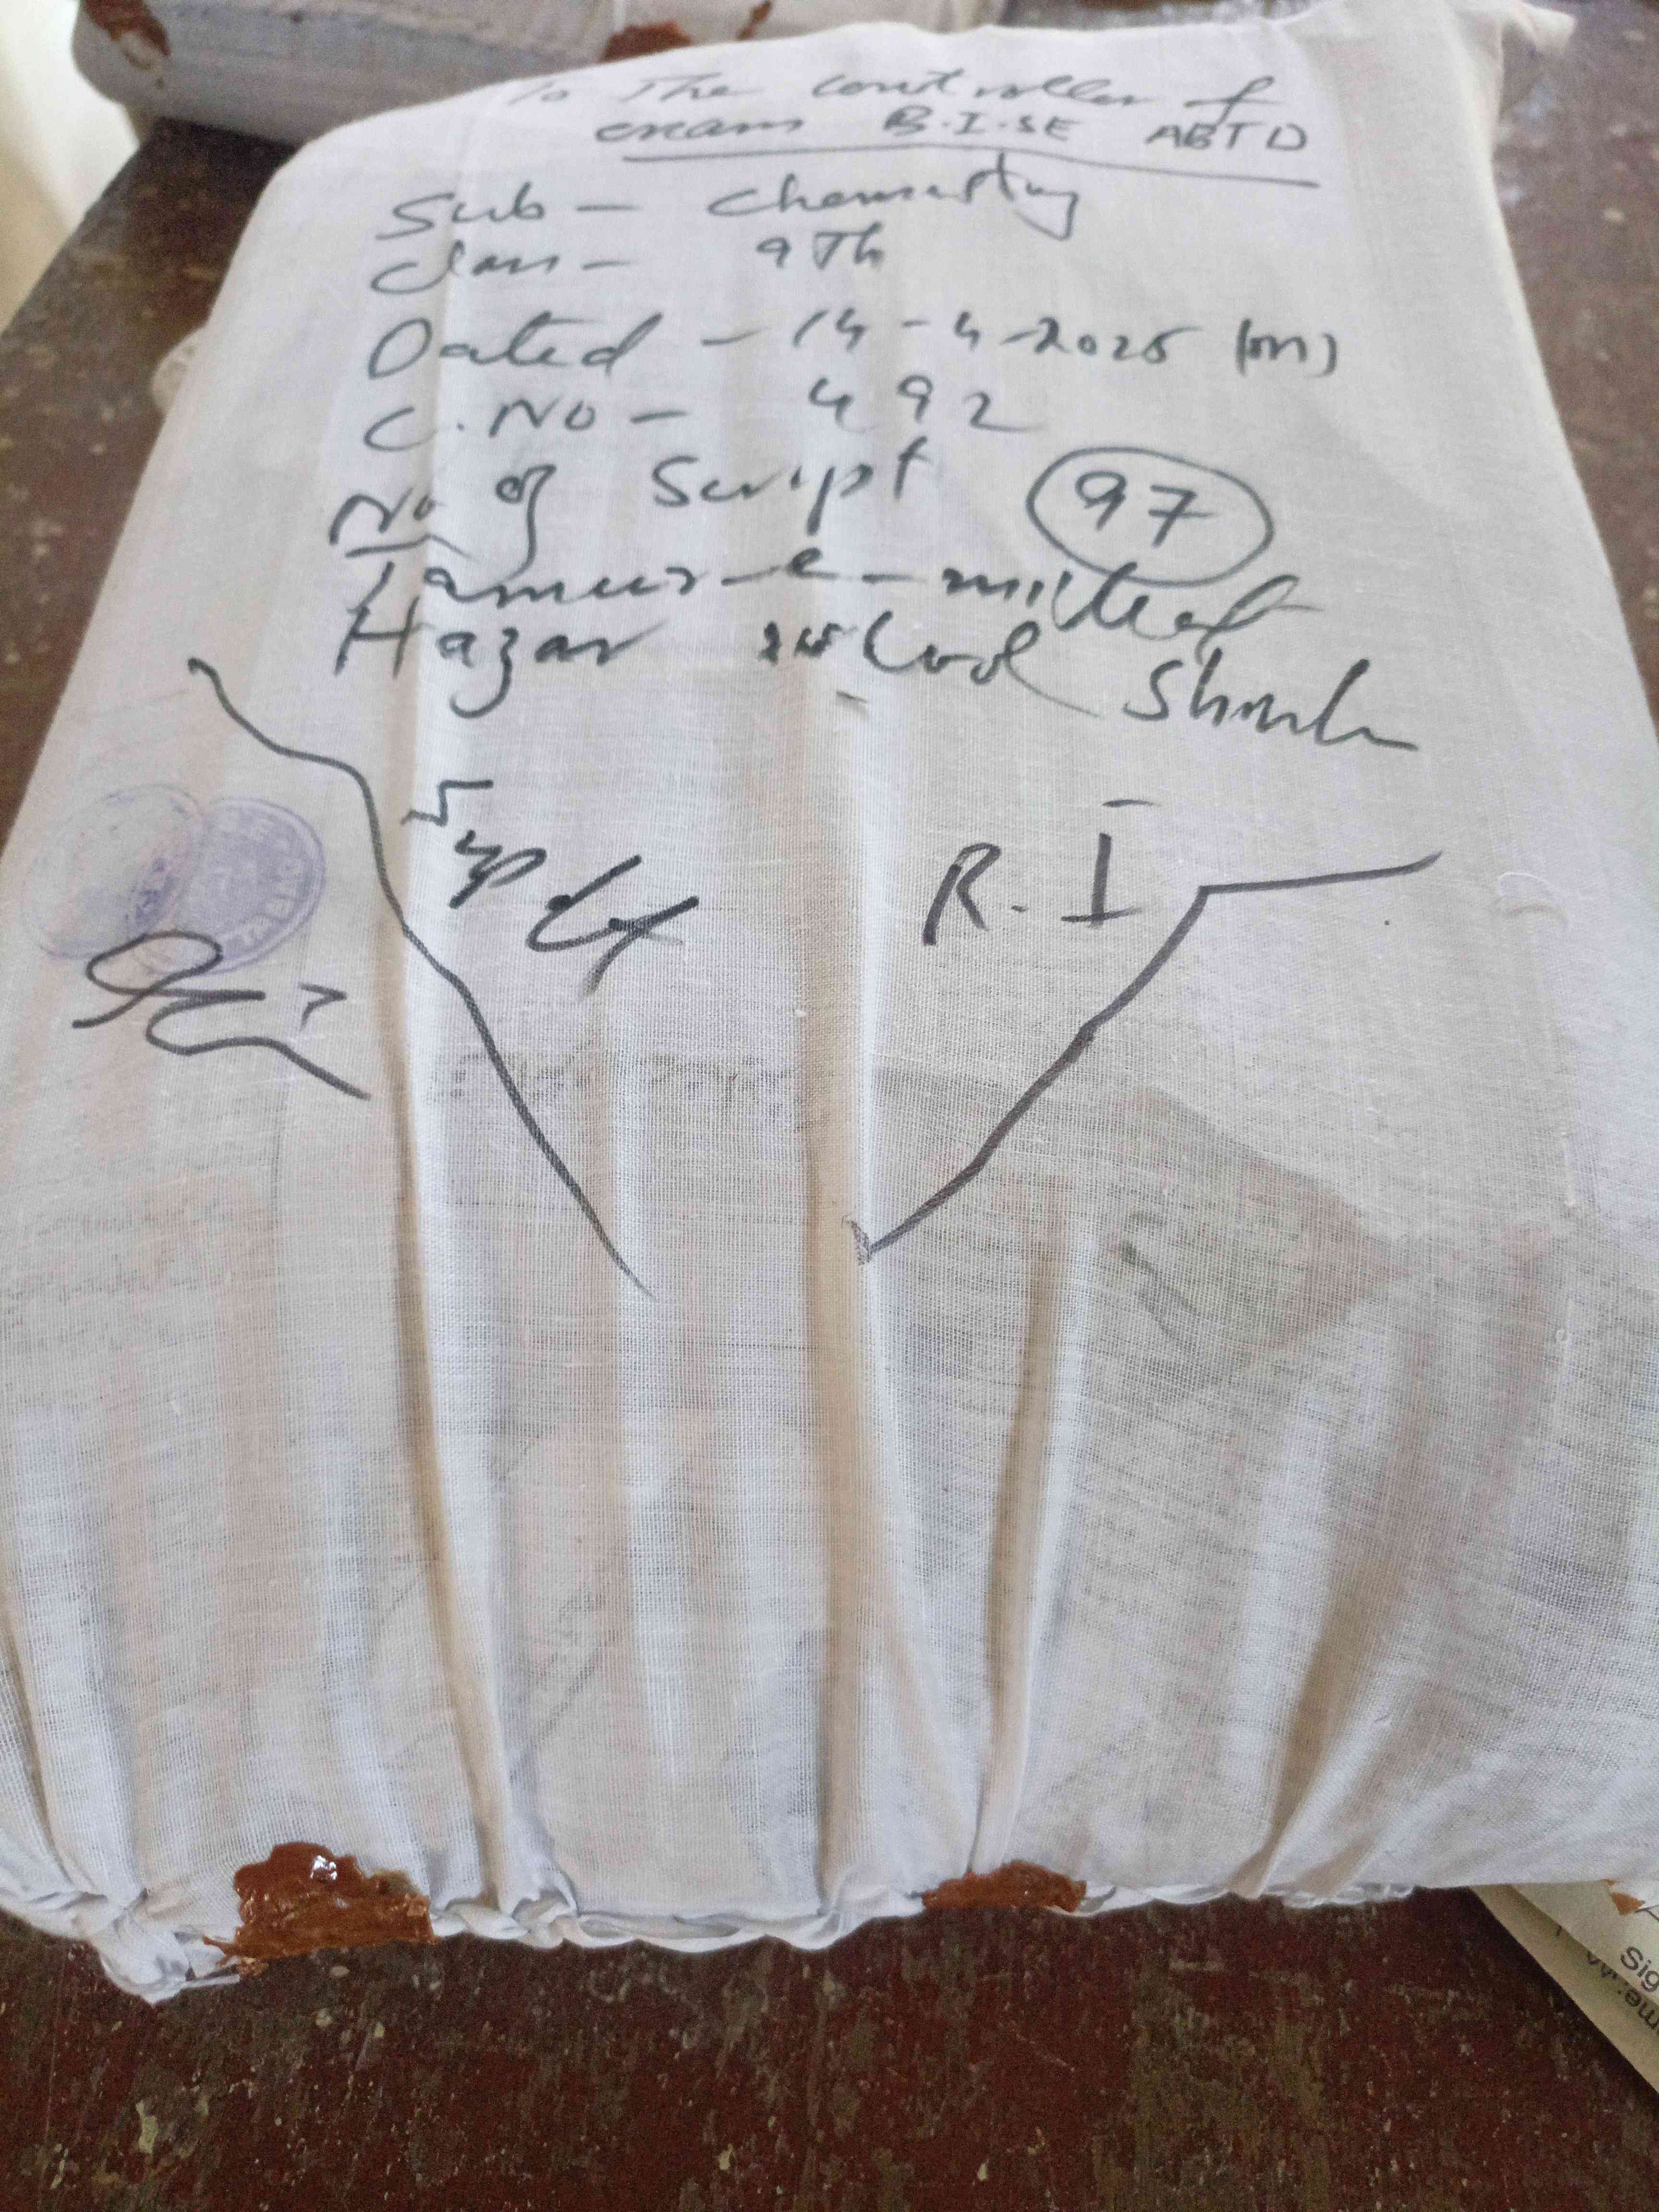 To The controller of
exam B.I.SE ABTD
Sub - Chemistry
Class - 9Th
Dated - 14-4-2025 (m)
C.No - 492
No of Script 97
Tameer-e-millat
Hazar
Supdt
R.I
Sig